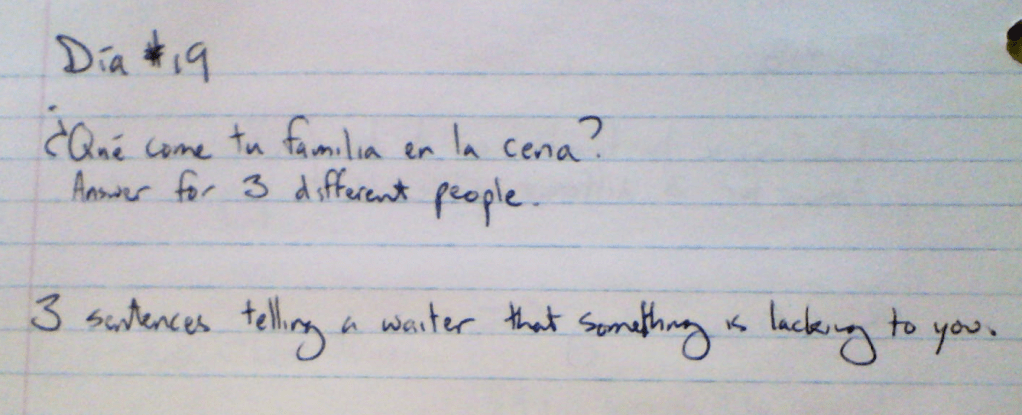 Día #19
¿Qué come tu familia en la cena?
Answer for 3 different people.
3 sentences telling a waiter that something is lacking to you.